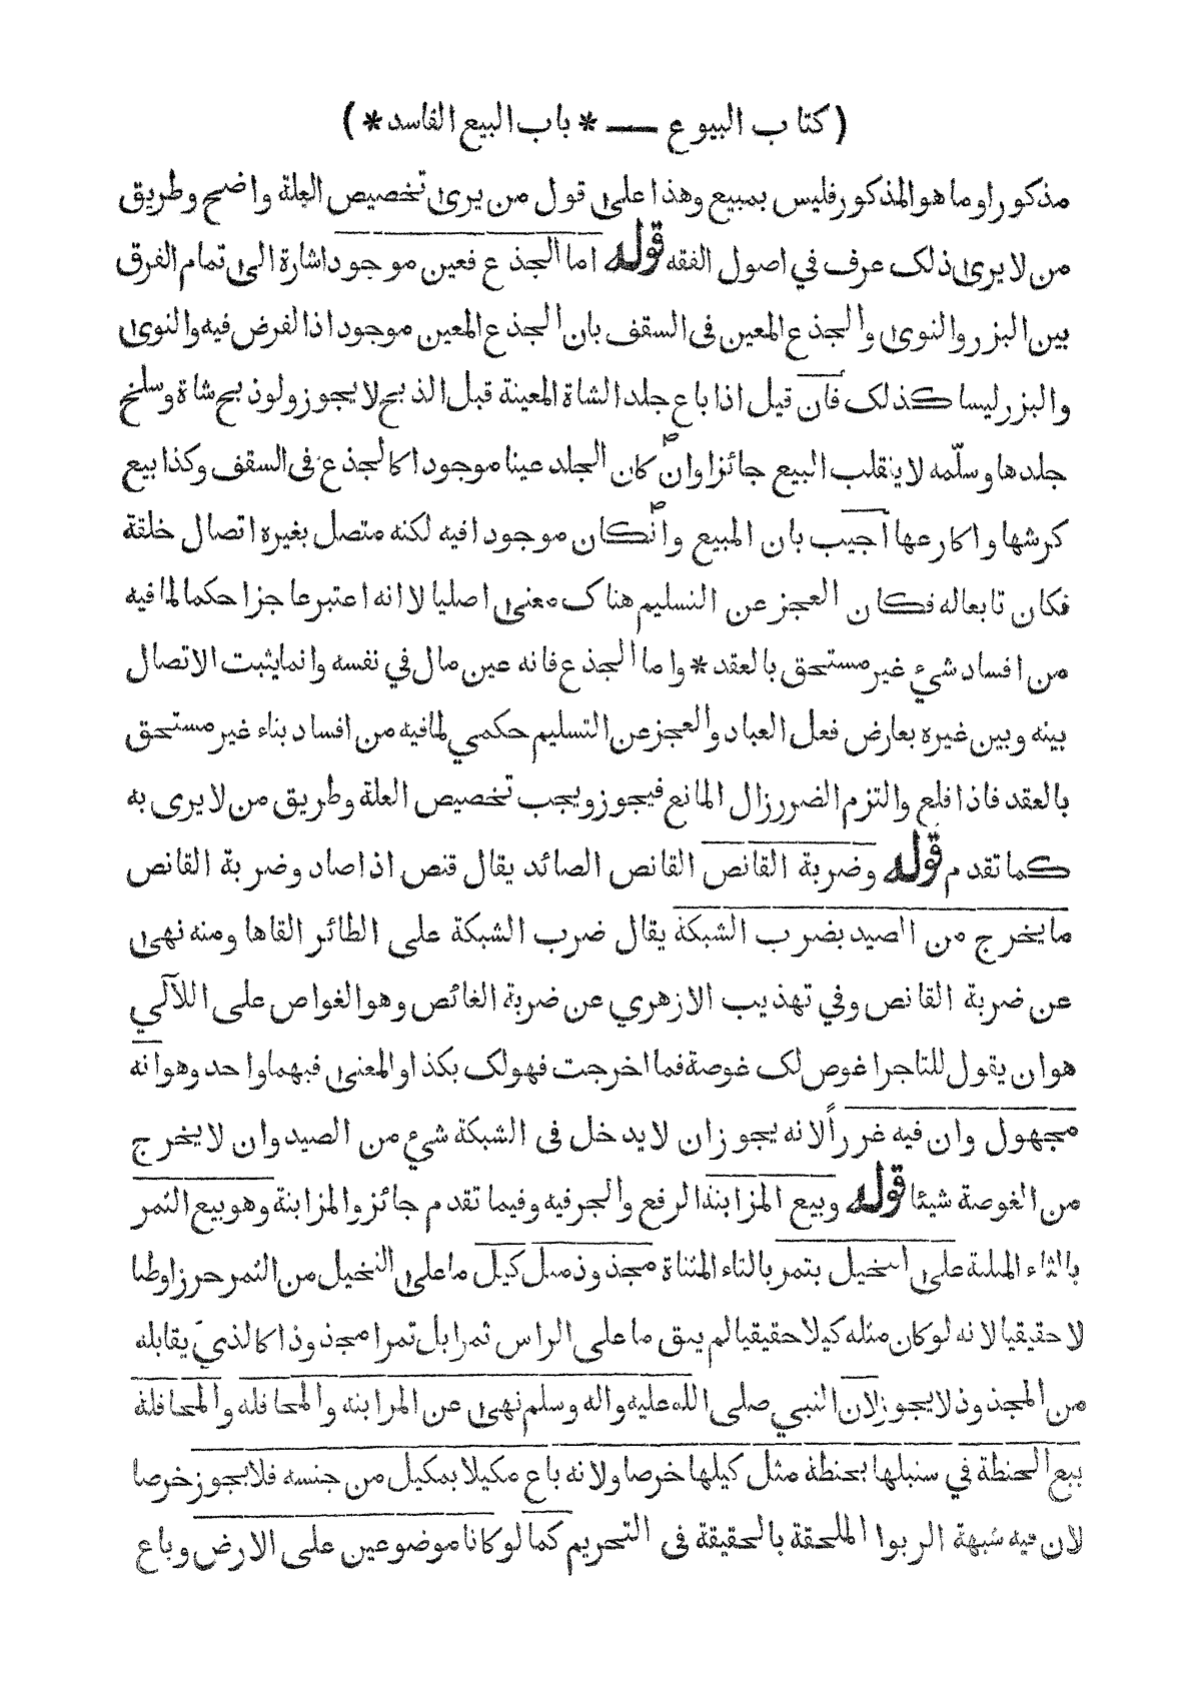 ( كتاب البيوع — * باب البيع الفاسد * )
مذكورا وما هو المذكور فليس بمبيع وهذا على قول من يرى تخصيص العلة واضح وطريق
من لا يرى ذلك عرف في اصول الفقه قوله اما الجذع فعين موجود اشارة الى تمام الفرق
بين البزر والنوى والجذع المعين فى السقف بان الجذع المعين موجود اذا لفرض فيه والنوى
والبزر ليسا كذلك فان قيل اذا باع جلد الشاة المعينة قبل الذبح لا يجوز ولو ذبح شاة وسلخ
جلدها وسلّمه لا ينقلب البيع جائزا وان كان الجلد عينا موجودا كالجذع فى السقف وكذا بيع
كرشها واكارعها اجيب بان المبيع وان كان موجودا فيه لكنه متصل بغيره اتصال خلقة
فكان تابعا له فكان العجز عن التسليم هناك معنى اصليا لا انه اعتبر عاجزا حكما لما فيه
من افساد شيء غير مستحق بالعقد * واما الجذع فانه عين مال في نفسه وانما يثبت الاتصال
بينه وبين غيره بعارض فعل العباد والعجز عن التسليم حكمي لما فيه من افساد بناء غير مستحق
بالعقد فاذا قلع والتزم الضرر زال المانع فيجوز ويجب تخصيص العلة وطريق من لا يرى به
كما تقدم قوله وضربة القانص القانص الصائد يقال قنص اذا صاد وضربة القانص
ما يخرج من الصيد بضرب الشبكة يقال ضرب الشبكة على الطائر القاها ومنه نهى
عن ضربة القانص وفي تهذيب الازهري عن ضربة الغائص وهو الغواص على اللآلي
هو ان يقول للتاجر اغوص لك غوصة فما اخرجت فهو لك بكذا والمعنى فيهما واحد وهو انه
مجهول وان فيه غرراً لانه يجوز ان لا يدخل فى الشبكة شيء من الصيد وان لا يخرج
من الغوصة شيئا قوله وبيع المزابنة الرفع والجر فيه وفيما تقدم جائز والمزابنة وهو بيع الثمر
بالثاء المثلثة على النخيل بتمر بالتاء المثناة مجذوذ مثل كيل ما على النخيل من الثمر حرزا وظنا
لا حقيقيا لانه لو كان مثله كيلا حقيقيا لم يبق ما على الراس ثمرا بل تمرا مجذوذا كالذيَ يقابله
من المجذوذ لا يجوز لان النبي صلى الله عليه واله وسلم نهى عن المزابنه والمحاقله والمحاقلة
بيع الحنطة في سنبلها بحنطة مثل كيلها خرصا ولانه باع مكيلا بمكيل من جنسه فلا يجوز خرصا
لان فيه شبهة الربوا الملحقة بالحقيقة فى التحريم كما لو كانا موضوعين على الارض وباع